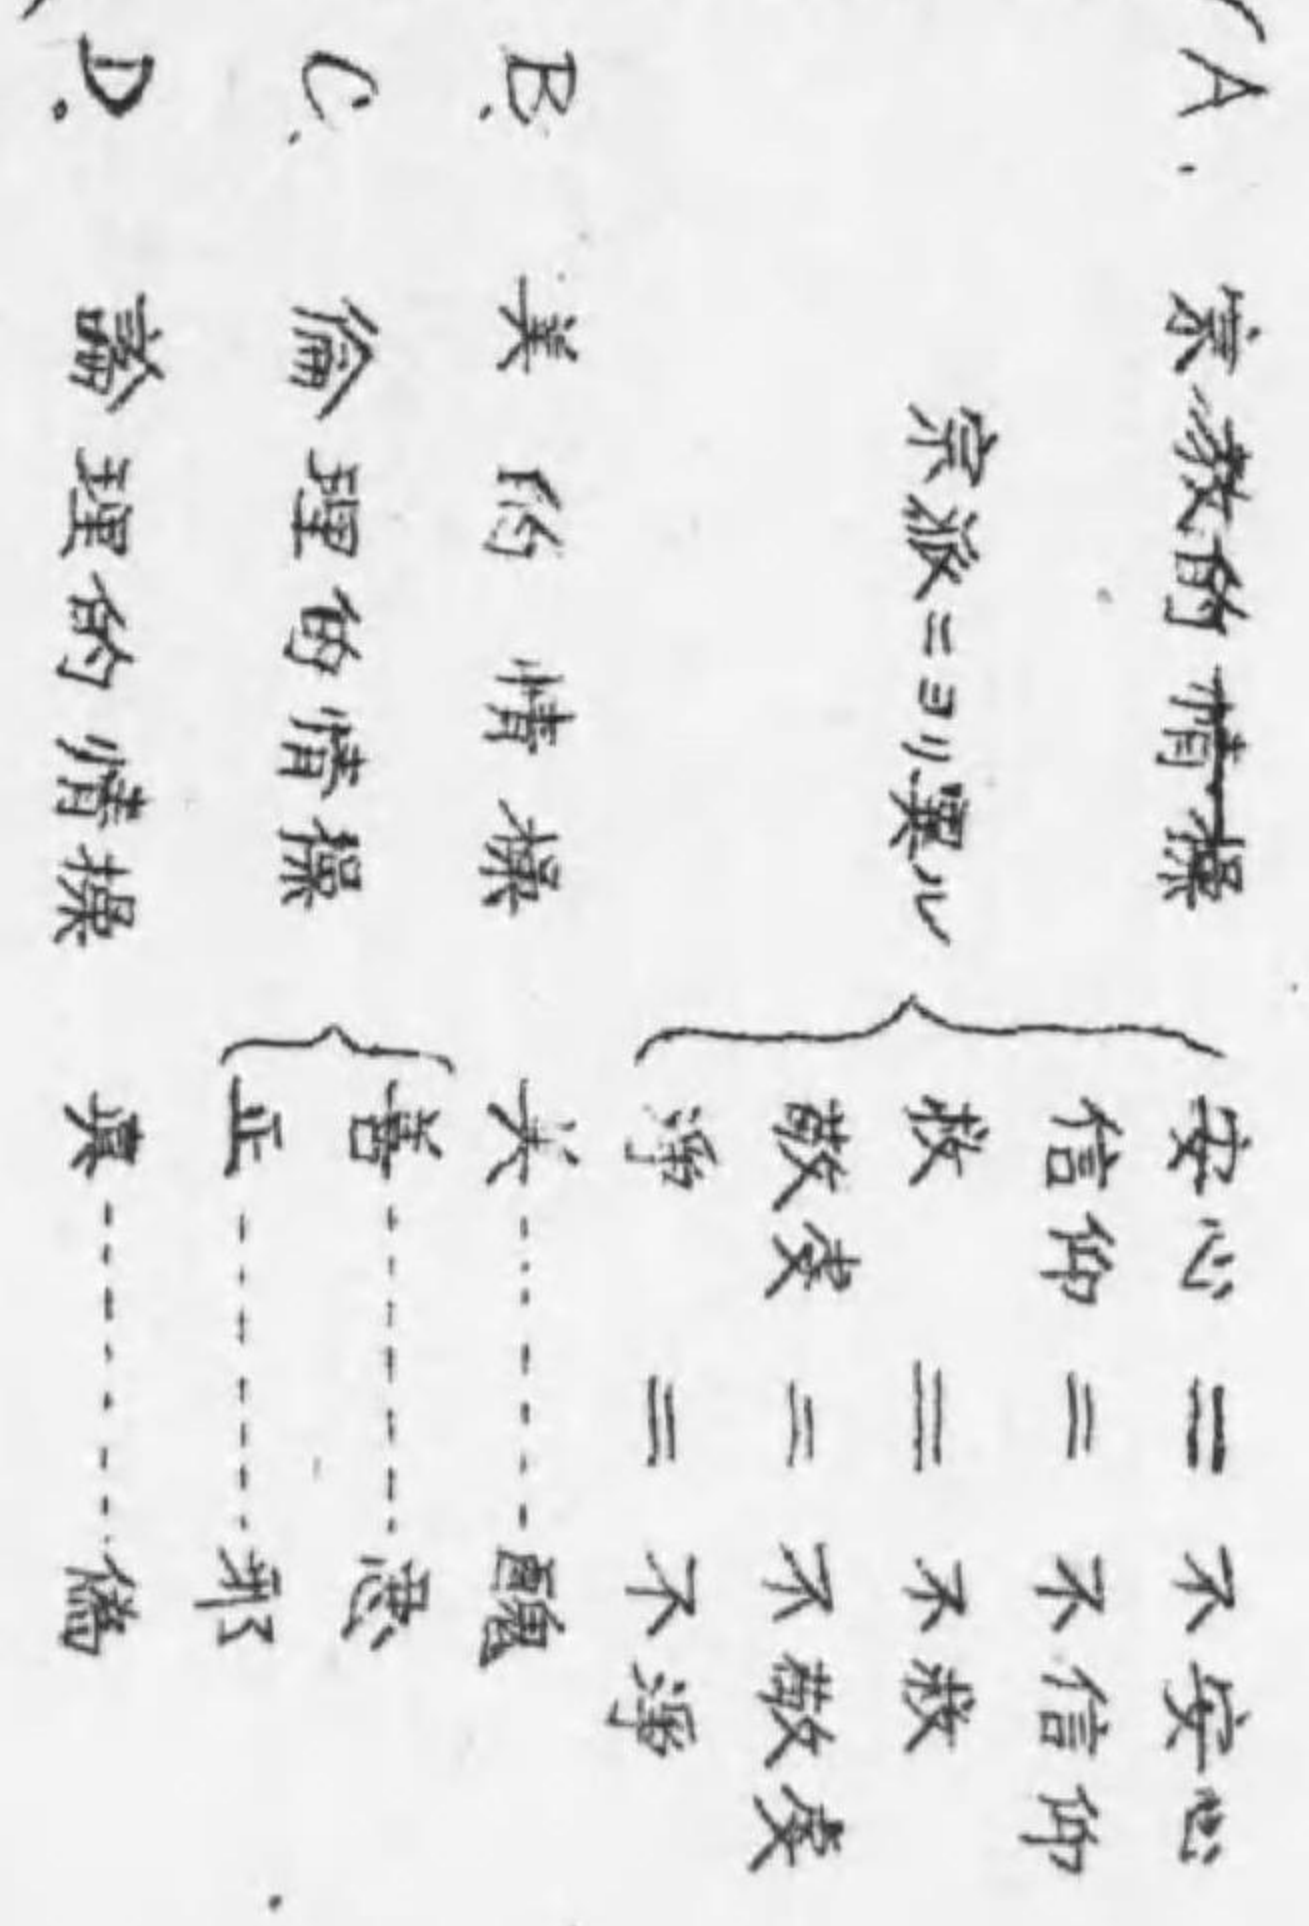 A. 宗教的情操
宗派ニヨリ異ル
安心＝不安心
信仰＝不信仰
救＝不救
敬虔＝不敬虔
淨＝不淨
B. 美的情操 美………醜
C. 倫理的情操
善………悪
正………邪
D. 論理的情操 真………偽